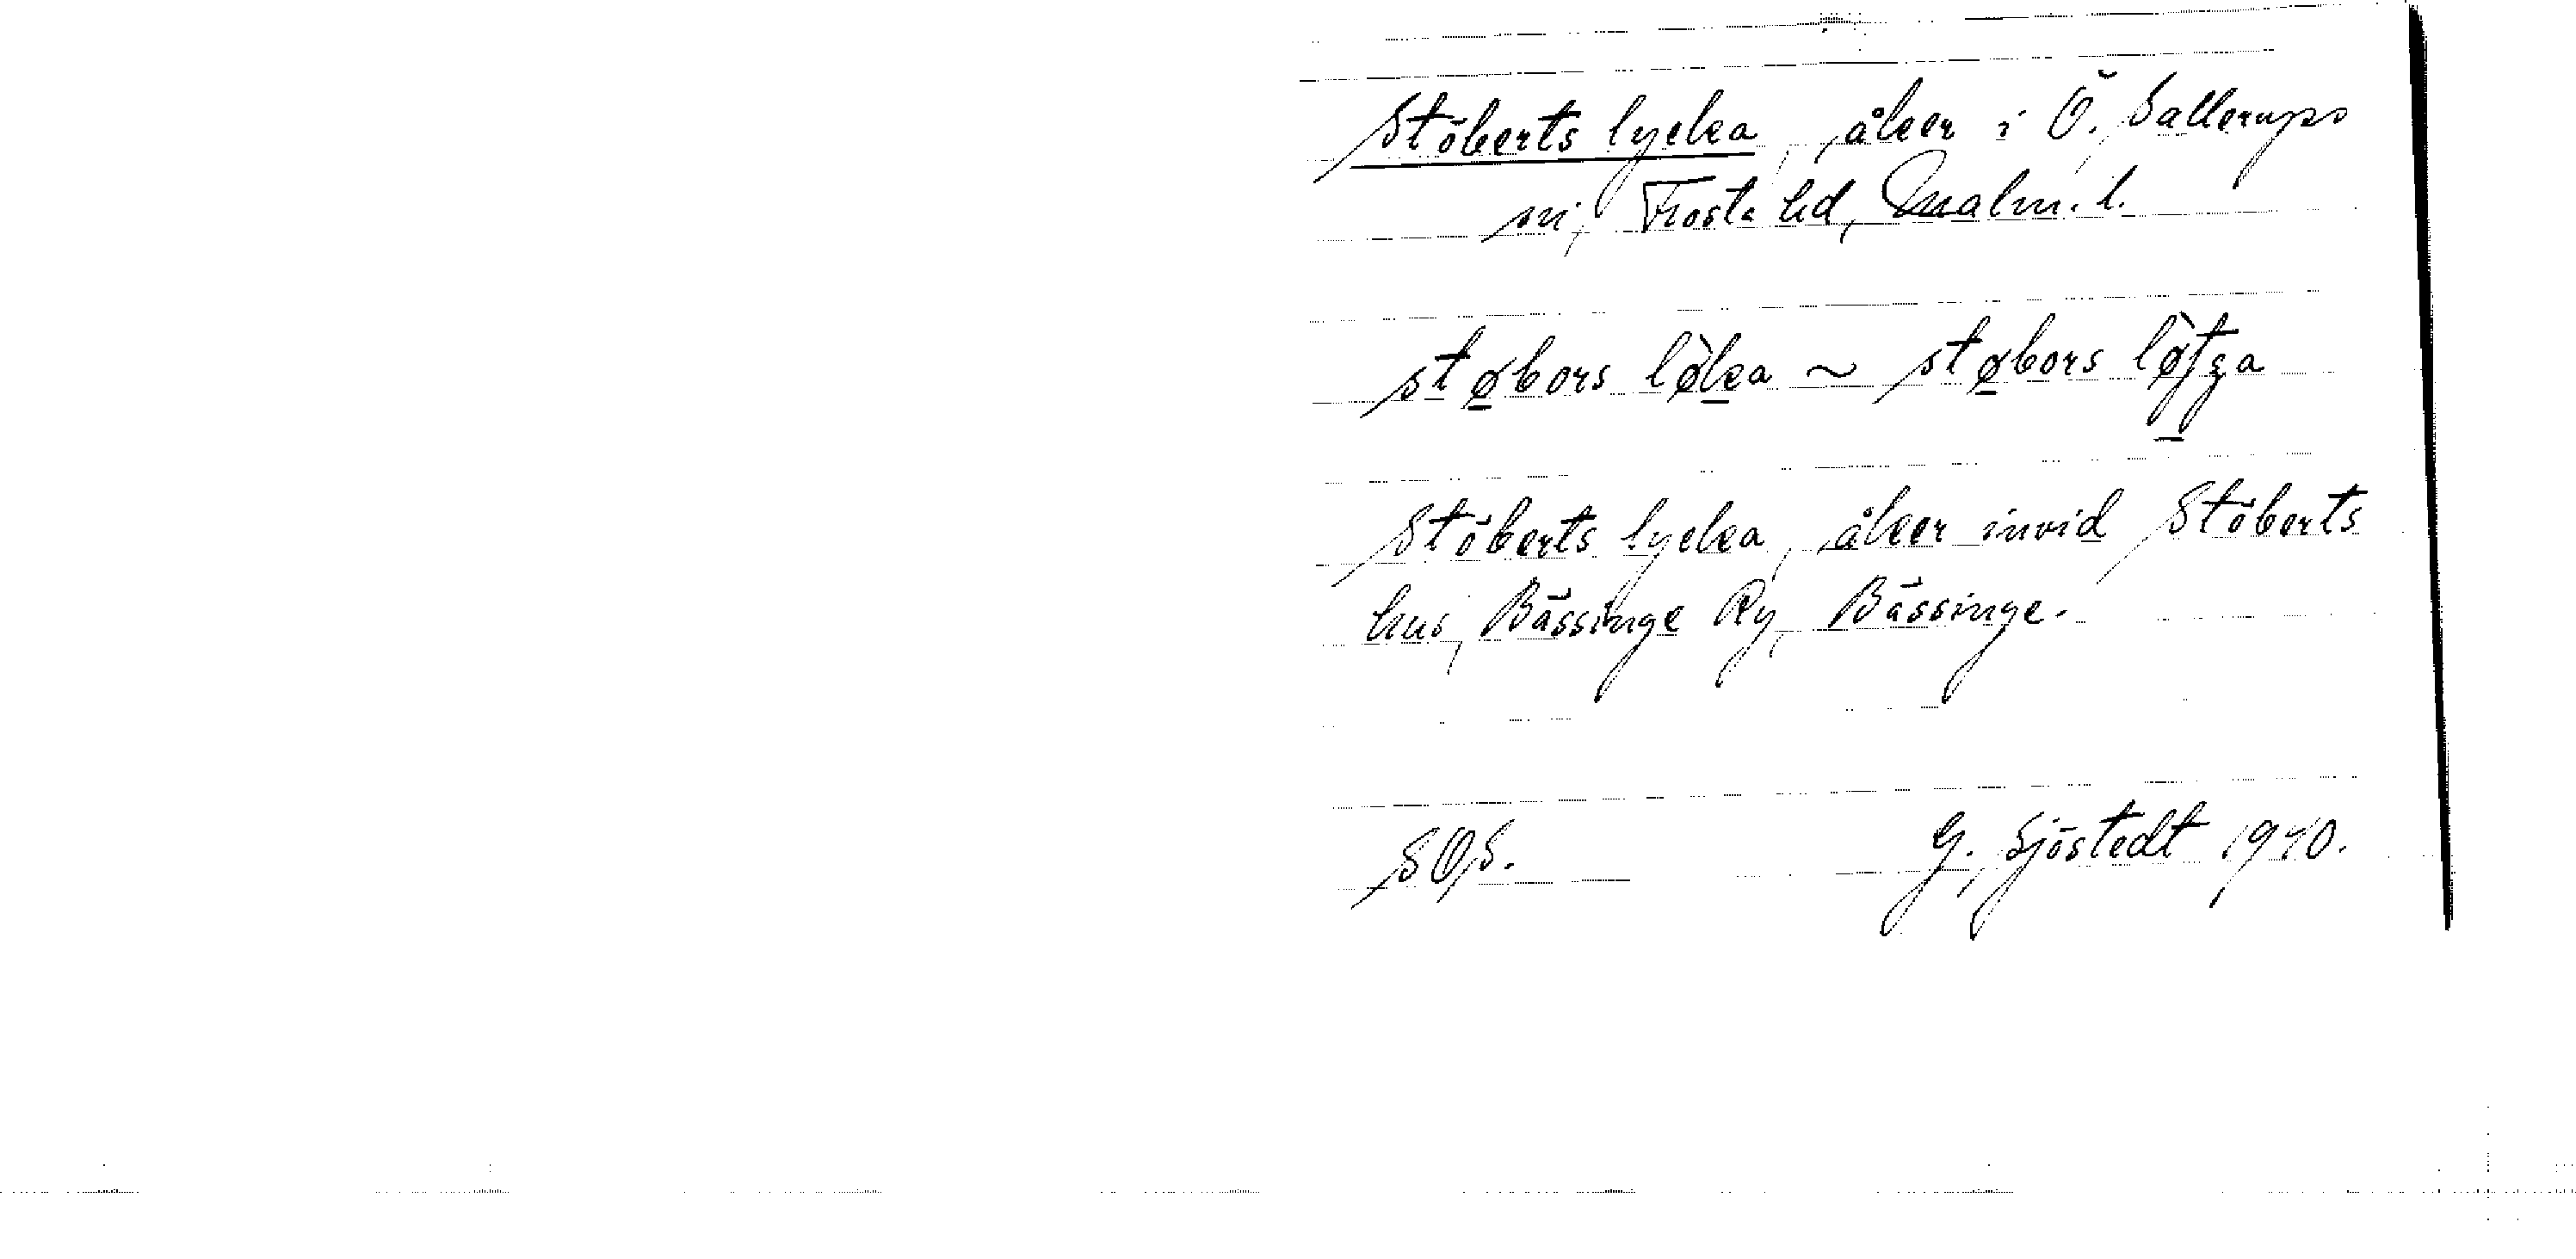 Stöberts lycka, åker i Ö. Sallerups
sn, Frosta hd, Malm. l.
støbors lø̀ka ~ støbors lø̀tga
Stöberts lycka, åker invid Stöberts
hus, Bässinge Ry, Bässinge.
SOS. G. Sjöstedt 1940.